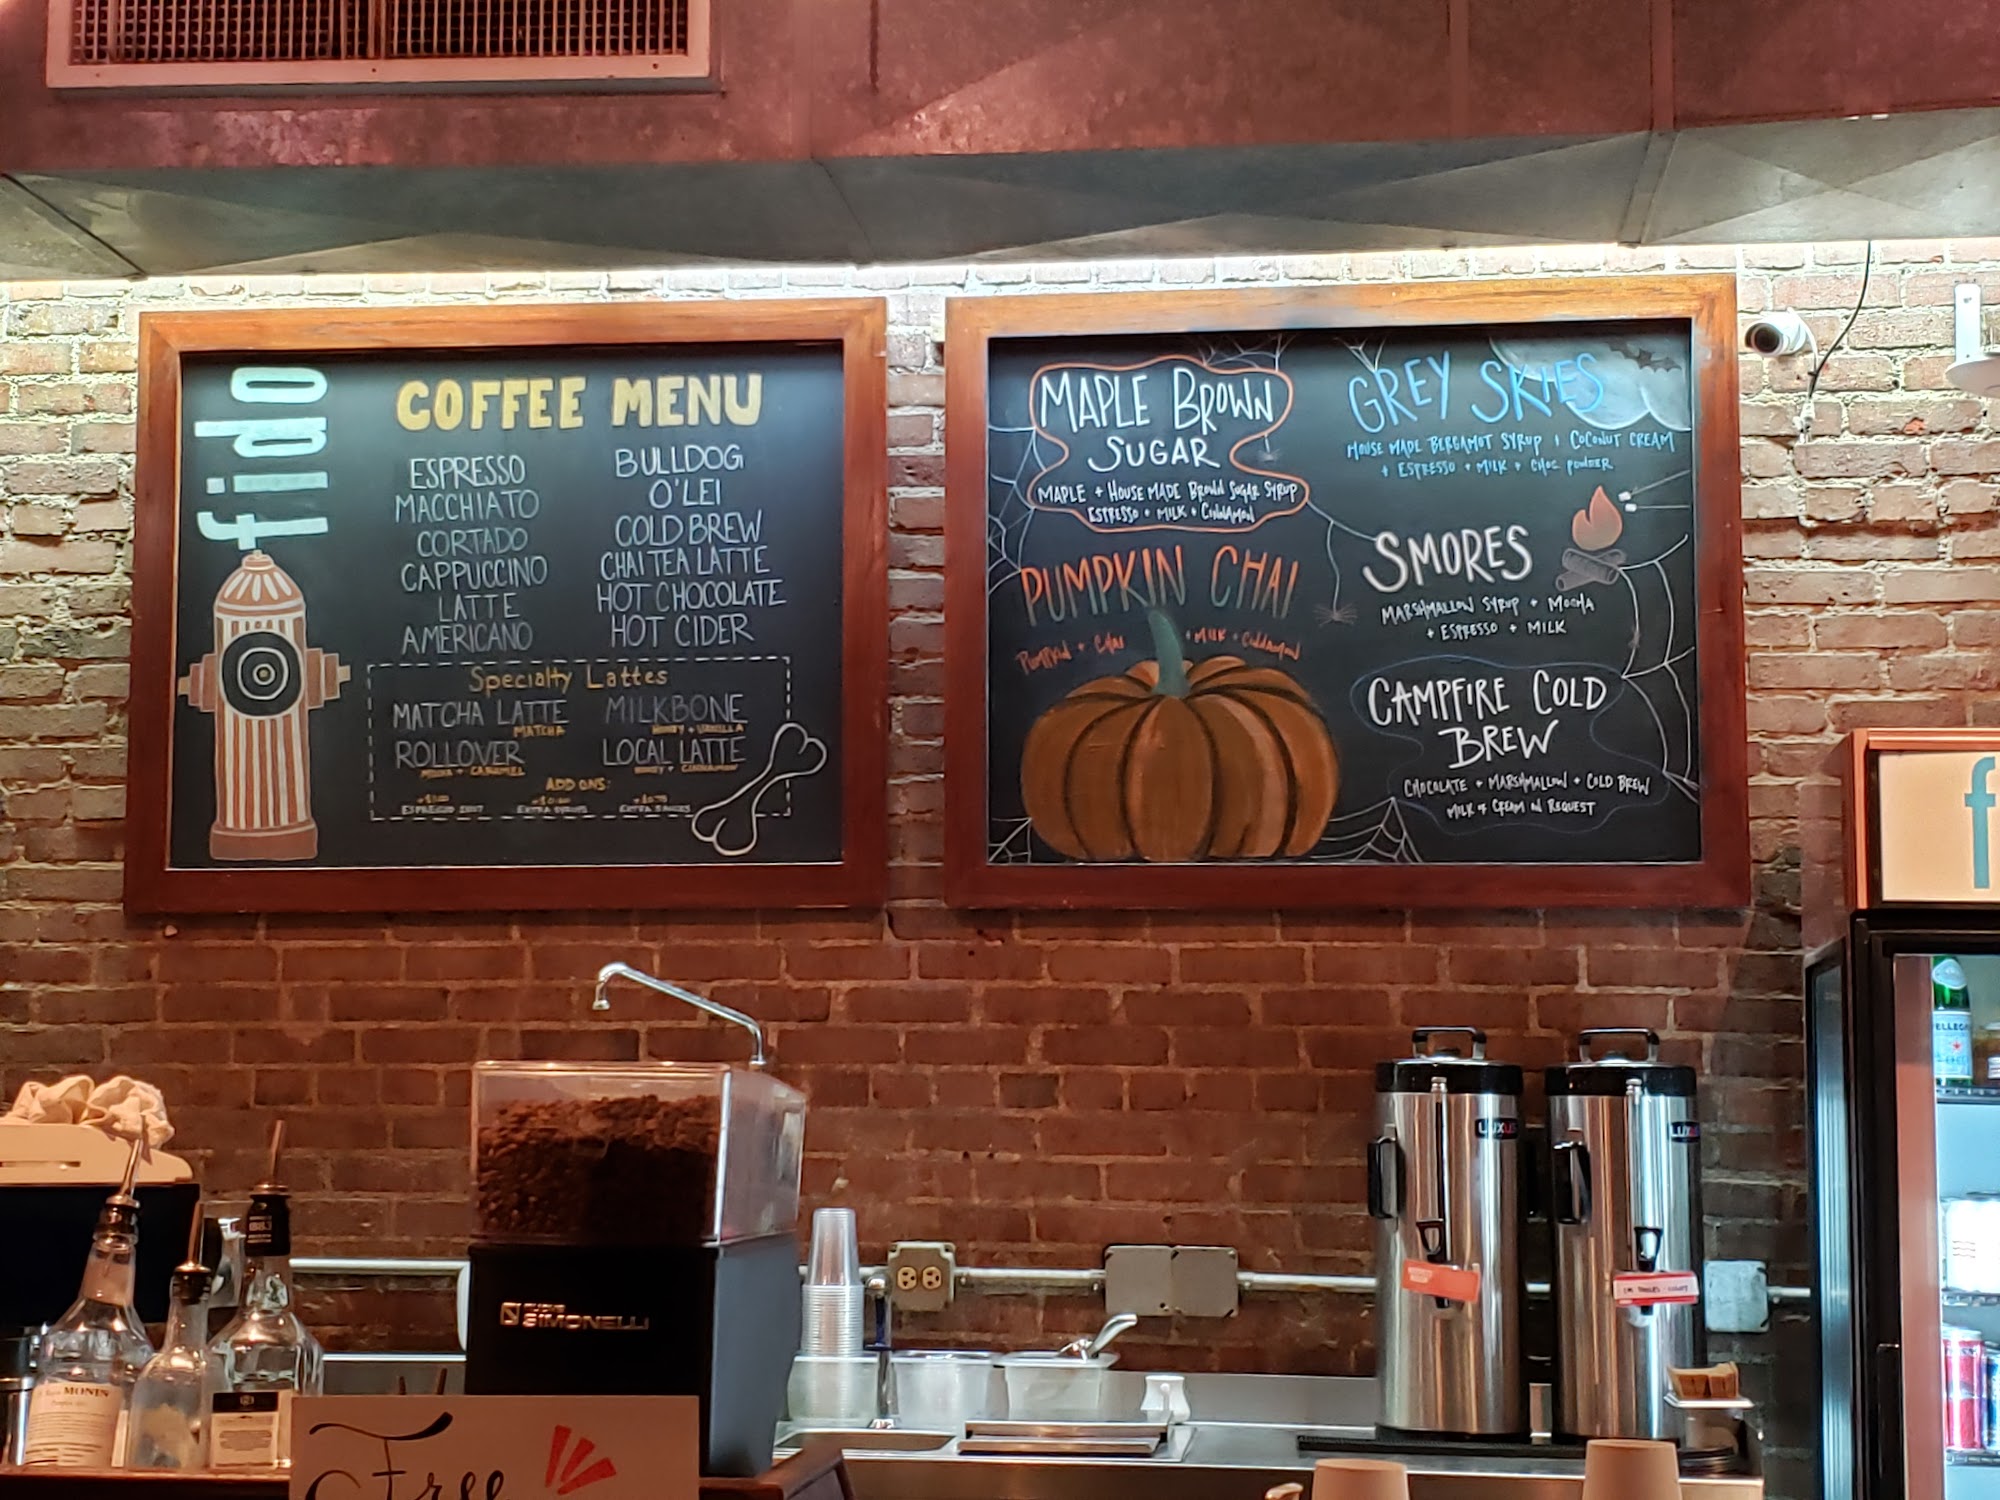 fido
COFFEE MENU
ESPRESSO
MACCHIATO
CORTADO
CAPPUCCINO
LATTE
AMERICANO
BULLDOG
O'LEI
COLD BREW
CHAI TEA LATTE
HOT CHOCOLATE
HOT CIDER
Specialty Lattes
MATCHA LATTE
MATCHA
MILKBONE
HONEY + VANILLA
ROLLOVER
MOCHA + CARAMEL
LOCAL LATTE
HONEY + CINNAMON
ADD ONS:
ESPRESSO SHOT
EXTRA SYRUPS
EXTRA SAUCES
MAPLE BROWN
SUGAR
MAPLE + HOUSE MADE BROWN SUGAR SYRUP
ESPRESSO + MILK + CINNAMON
PUMPKIN CHAI
PUMPKIN + CHAI + MILK + CINNAMON
GREY SKIES
HOUSE MADE BERGAMOT SYRUP + COCONUT CREAM
+ ESPRESSO + MILK + CHOC POWDER
SMORES
MARSHMALLOW SYRUP + MOCHA
+ ESPRESSO + MILK
CAMPFIRE COLD
BREW
CHOCOLATE + MARSHMALLOW + COLD BREW
MILK OR CREAM ON REQUEST
f
PELLEGRI
LUXUS
LUXUS
NUOVA
SIMONELLI
MONIN
1883
Free